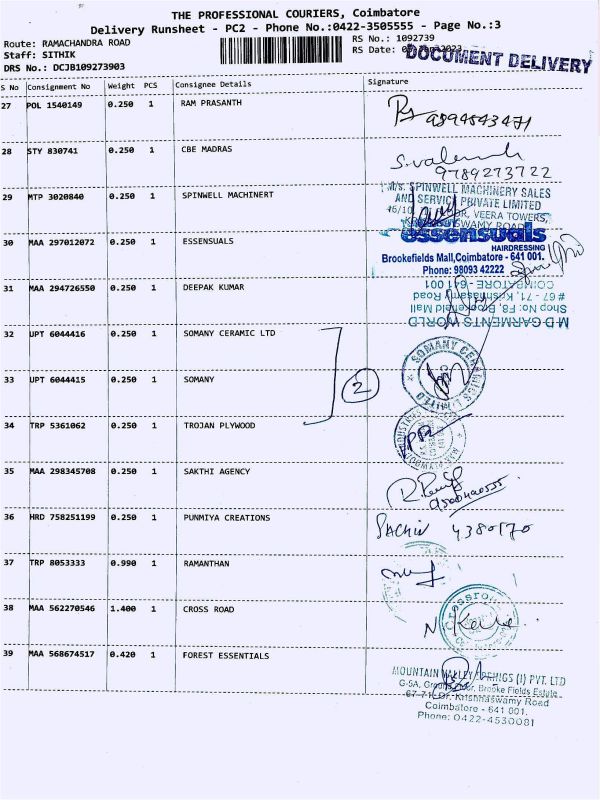 THE PROFESSIONAL COURIERS, Coimbatore
Delivery Runsheet - PC2 - Phone No.:0422-3505555 - Page No.:3
Route: RAMACHANDRA ROAD
RS No.: 1092739
Staff: SITHIK
RS Date:
DOCUMENT DELIVERY
DRS No.: DCJB109273903
S No Consignment No Weight PCS Consignee Details Signature
27 POL 1540149 0.250 1 RAM PRASANTH
28 STY 830741 0.250 1 CBE MADRAS
9789273722
29 MTP 3020840 0.250 1 SPINWELL MACHINERT
M/s. SPINWELL MACHINERY SALES
AND SERVICE PRIVATE LIMITED
VEERA TOWERS,
30 MAA 297012072 0.250 1 ESSENSUALS
essensuals
HAIRDRESSING
Brookefields Mall,Coimbatore - 641 001.
Phone: 98093 42222
31 MAA 294726550 0.250 1 DEEPAK KUMAR
COIMBATORE - 641 001
# 67 - 71, Krishnasamy Road
Shop No: F8, Brookefield Mall
M D GARMENTS WORLD
32 UPT 6044416 0.250 1 SOMANY CERAMIC LTD
33 UPT 6044415 0.250 1 SOMANY
2
SOMANY CERAMICS LIMITED
34 TRP 5361062 0.250 1 TROJAN PLYWOOD
35 MAA 298345708 0.250 1 SAKTHI AGENCY
36 HRD 758251199 0.250 1 PUNMIYA CREATIONS
SACHIN 4380170
37 TRP 8053333 0.990 1 RAMANTHAN
38 MAA 562270546 1.400 1 CROSS ROAD
Crossroads
39 MAA 568674517 0.420 1 FOREST ESSENTIALS
MOUNTAIN VALLEY SPRINGS (I) PVT. LTD
G-5A, Ground Floor, Brooke Fields Estate
67-71, Dr. Krishnaswamy Road
Coimbatore - 641 001.
Phone: 0422-4530081